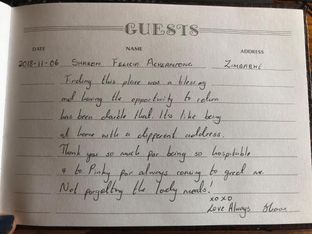 GUESTS
DATE NAME ADDRESS
2018-11-06 Sharon Felicia Acheampong Zimbabwe
Finding this place was a blessing
and having the opportunity to return
has been double that. It's like being
at home with a different address.
Thank you so much for being so hospitable
& to Pinky for always coming to greet me
Not forgetting the lovely meals!
xoxo
Love Always